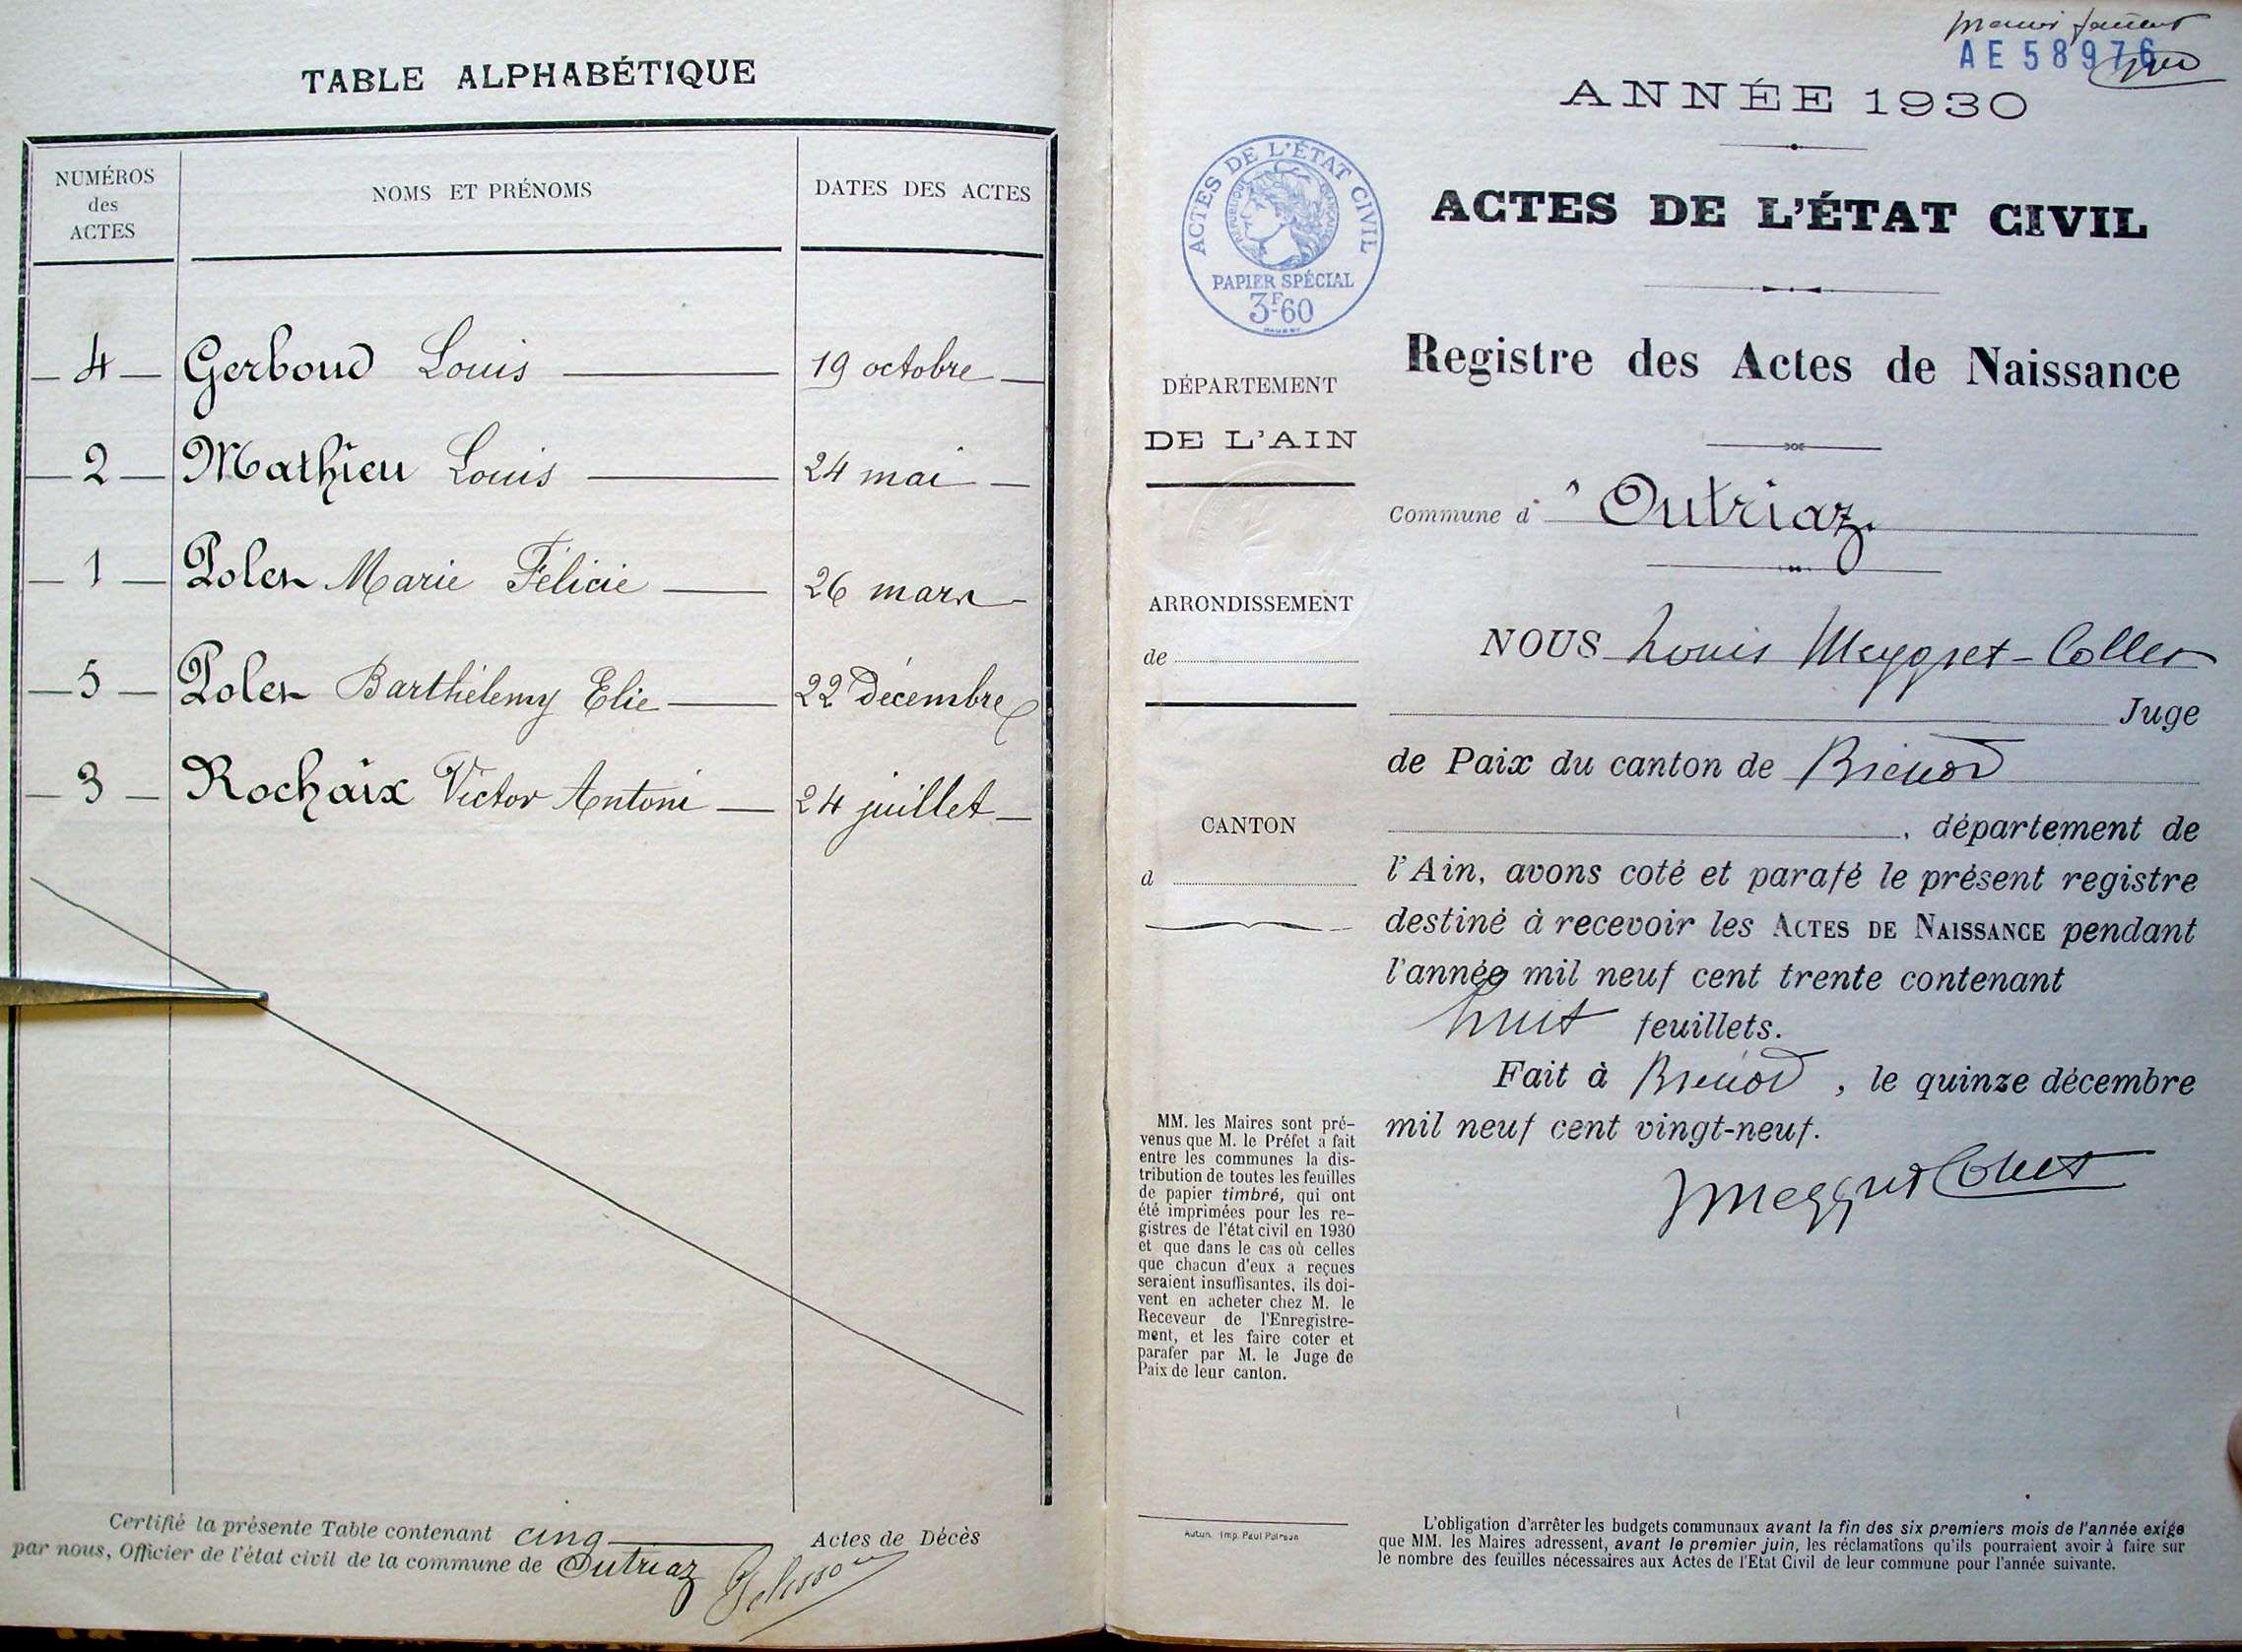 TABLE ALPHABÉTIQUE
NUMÉROS des ACTES
NOMS ET PRÉNOMS
DATES DES ACTES
4 Gerboud Louis 19 octobre
2 Mathieu Louis 24 mai
1 Poler Marie Félicie 26 mars
5 Poler Barthélemy Elie 22 décembre
3 Rochaix Victor Antoni 24 juillet
Certifié la présente Table contenant cinq Actes de Décès
par nous, Officier de l'état civil de la commune de Outriaz
AE 58976
ANNÉE 1930
ACTES DE L'ÉTAT CIVIL
RÉPUBLIQUE FRANÇAISE
PAPIER SPÉCIAL
3F60
ACTES DE L'ÉTAT CIVIL
Registre des Actes de Naissance
DÉPARTEMENT
DE L'AIN
Commune d' Outriaz.
ARRONDISSEMENT
de
CANTON
d
NOUS Louis Meygret-Collet
Juge
de Paix du canton de Brénod
, département de
l'Ain, avons coté et parafé le présent registre
destiné à recevoir les ACTES DE NAISSANCE pendant
l'année mil neuf cent trente contenant
huit feuillets.
Fait à Brénod, le quinze décembre
mil neuf cent vingt-neuf.
Meygret Collet
MM. les Maires sont pré-
venus que M. le Préfet a fait
entre les communes la dis-
tribution de toutes les feuilles
de papier timbré, qui ont
été imprimées pour les re-
gistres de l'état civil en 1930
et que dans le cas où celles
que chacun d'eux a reçues
seraient insuffisantes, ils doi-
vent en acheter chez M. le
Receveur de l'Enregistre-
ment, et les faire coter et
parafer par M. le Juge de
Paix de leur canton.
Autun. Imp. Paul
L'obligation d'arrêter les budgets communaux avant la fin des six premiers mois de l'année exige
que MM. les Maires adressent, avant le premier juin, les réclamations qu'ils pourraient avoir à faire sur
le nombre des feuilles nécessaires aux Actes de l'Etat Civil de leur commune pour l'année suivante.